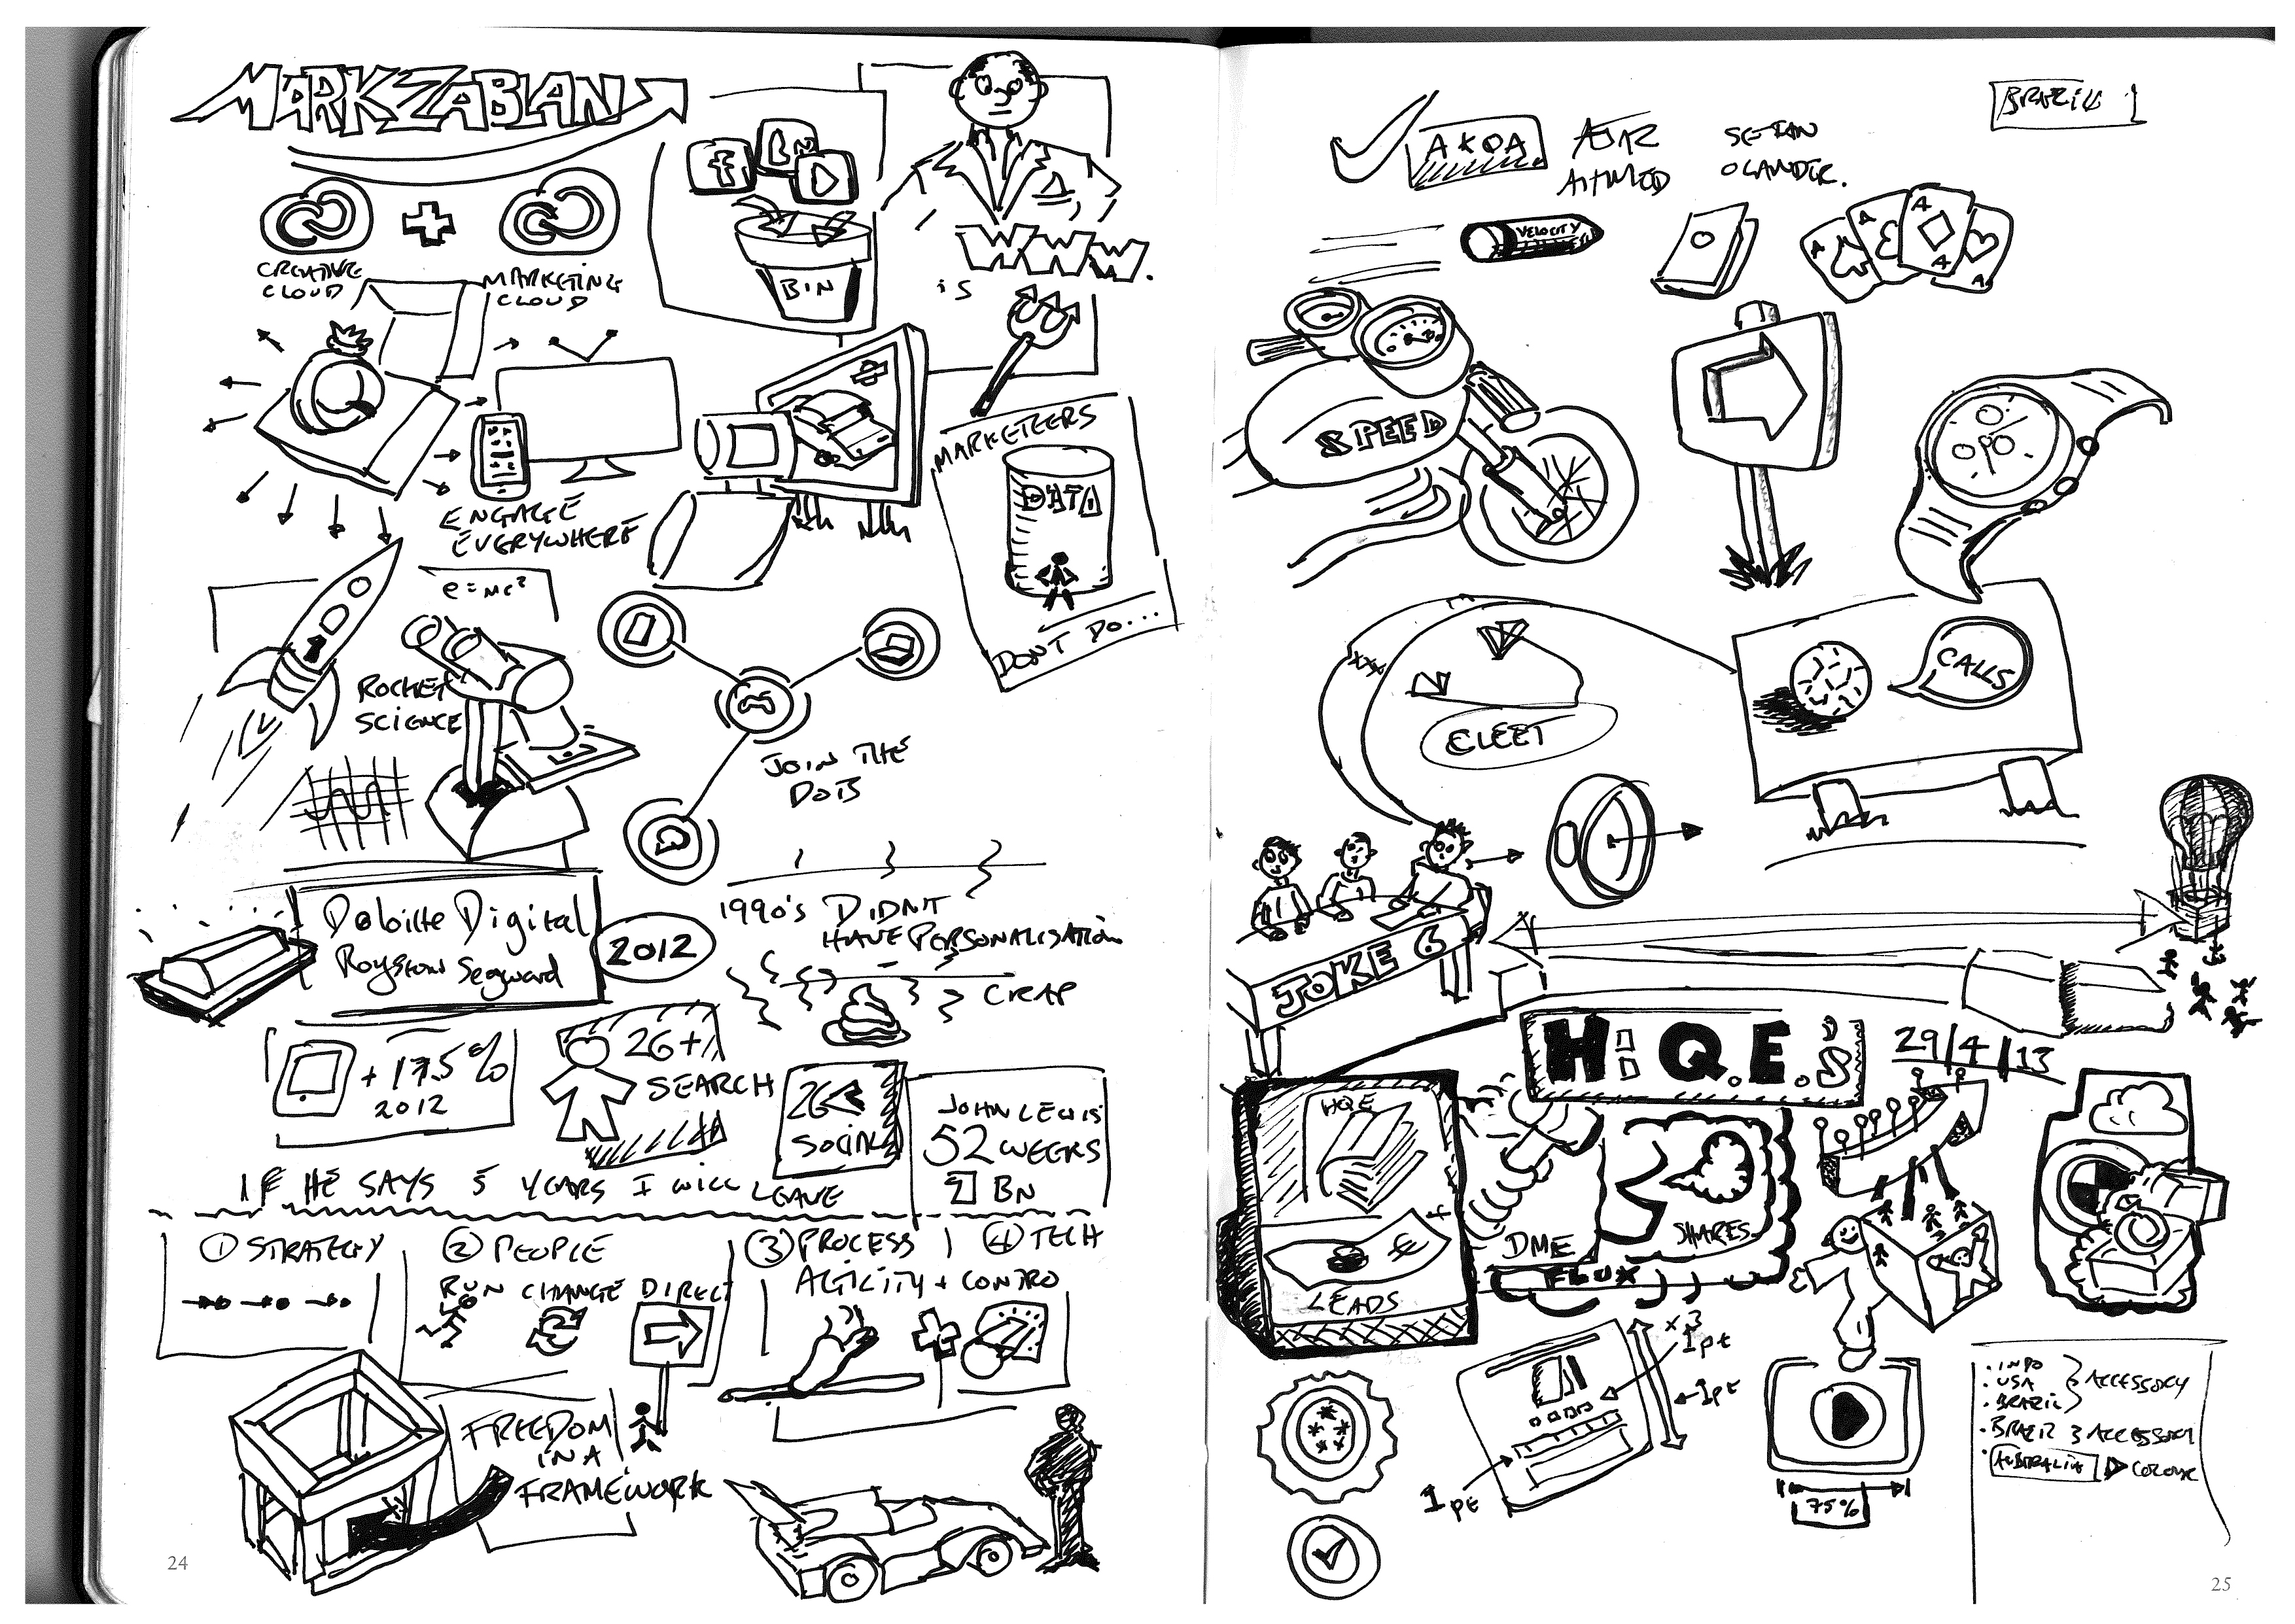 MARK ZABLAN
f
Bn
CREATIVE
CLOUD
MARKETING
CLOUD
BIN
is
WWW.
MARKETEERS
DATA
DONT DO...
ENGAGE
EVERYWHERE
e=mc²
ROCKET
SCIENCE
JOIN THE
DOTS
Deloitte Digital
Royston Seaward
2012
1990's DIDNT
HAVE PERSONALISATION
CRAP
+ 17.5%
2012
26+
SEARCH
26<
SOCIAL
JOHN LEWIS
52 WEEKS
BN
IF HE SAYS 5 YEARS I WILL LEAVE
① STRATEGY
② PEOPLE
RUN CHANGE DIRECT
③ PROCESS
AGILITY + CONTRO
④ TECH
FREEDOM
IN A
FRAMEWORK
24
BRAZIL 1
AKQA
AJAZ
AHMED
SEFAN
OLANDER.
VELOCITY
A
A
A
A
A
SPEED
CALLS
CLEET
JOKE 6
H:Q.E.'S
29/4/13
HQE
LEADS
DME
FLUX
SHARES
x3
1pt
1pt
1pt
75%
· INDO
· USA
· BRAZIL
ACCESSORY
· BRAZIL 3 ACCESSORY
· AUSTRALIA
25